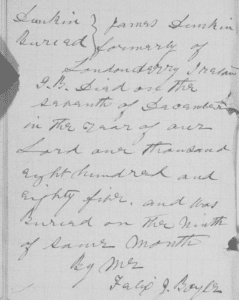 Dunkin } James Dunkin
Buried } formerly of
Londonderry Ireland
Died on the
Seventh of December
in the Year of our
Lord one thousand
eight hundred and
eighty five. and was
Buried on the Ninth
of same Month
By Me
Felix J. Boyle